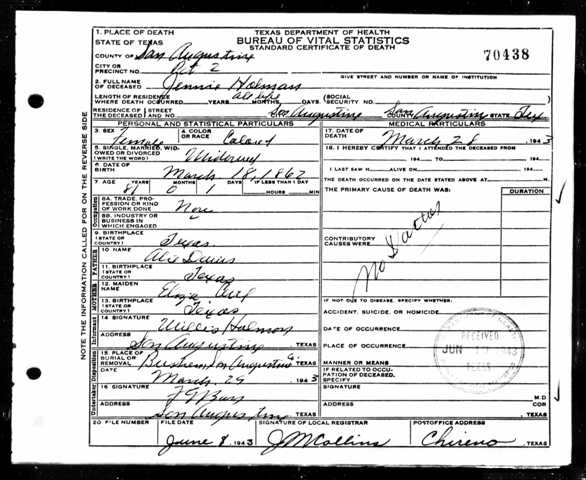 NOTE THE INFORMATION CALLED FOR ON THE REVERSE SIDE
1. PLACE OF DEATH
TEXAS DEPARTMENT OF HEALTH
STATE OF TEXAS
BUREAU OF VITAL STATISTICS
STANDARD CERTIFICATE OF DEATH
COUNTY OF San Augustine
70438
CITY OR
PRECINCT NO. Pct 2
GIVE STREET AND NUMBER OR NAME OF INSTITUTION
2. FULL NAME
OF DECEASED Jennie Holman
LENGTH OF RESIDENCE
WHERE DEATH OCCURRED YEARS MONTHS, DAYS all life
(SOCIAL
SECURITY NO.
RESIDENCE OF (STREET
THE DECEASED (AND NO. San Augustine COUNTY San Augustine STATE Tex
PERSONAL AND STATISTICAL PARTICULARS
MEDICAL PARTICULARS
3. SEX Female
4. COLOR
OR RACE Colored
17. DATE OF
DEATH March 28, 1943
5. SINGLE, MARRIED, WID-
OWED OR DIVORCED
(WRITE THE WORD)
18. I HEREBY CERTIFY THAT I ATTENDED THE DECEASED FROM
194 TO 194
6. DATE OF
BIRTH March 18, 1862
I LAST SAW H ALIVE ON 194
7. AGE 81 0 1 IF LESS THAN 1 DAY
HOURS MIN
THE DEATH OCCURRED ON THE DATE STATED ABOVE AT M
8A. TRADE, PRO-
FESSION OR KIND
OF WORK DONE None
THE PRIMARY CAUSE OF DEATH WAS:
DURATION
8B. INDUSTRY OR
BUSINESS IN
WHICH ENGAGED
9. BIRTHPLACE
(STATE OR
COUNTRY) Texas
CONTRIBUTORY
CAUSES WERE
No Doctor
FATHER
10. NAME
11. BIRTHPLACE
(STATE OR
COUNTRY) Texas
MOTHER
12. MAIDEN
NAME
IF NOT DUE TO DISEASE, SPECIFY WHETHER:
13. BIRTHPLACE
(STATE OR
COUNTRY) Texas
ACCIDENT, SUICIDE, OR HOMICIDE
14. SIGNATURE Willis Holman
DATE OF OCCURRENCE
ADDRESS San Augustine TEXAS
PLACE OF OCCURRENCE
RECEIVED
JUN 1943
15. PLACE OF
BURIAL OR
REMOVAL San Augustine TEXAS
MANNER OR MEANS
DATE March 29 1943
IF RELATED TO OCCU-
PATION OF DECEASED,
SPECIFY
16. SIGNATURE
M.D
COR
ADDRESS San Augustine TEXAS
TEXAS
20 FILE NUMBER
FILE DATE
SIGNATURE OF LOCAL REGISTRAR
POSTOFFICE ADDRESS
June 8, 1943 J M Collins Chireno, TEXAS